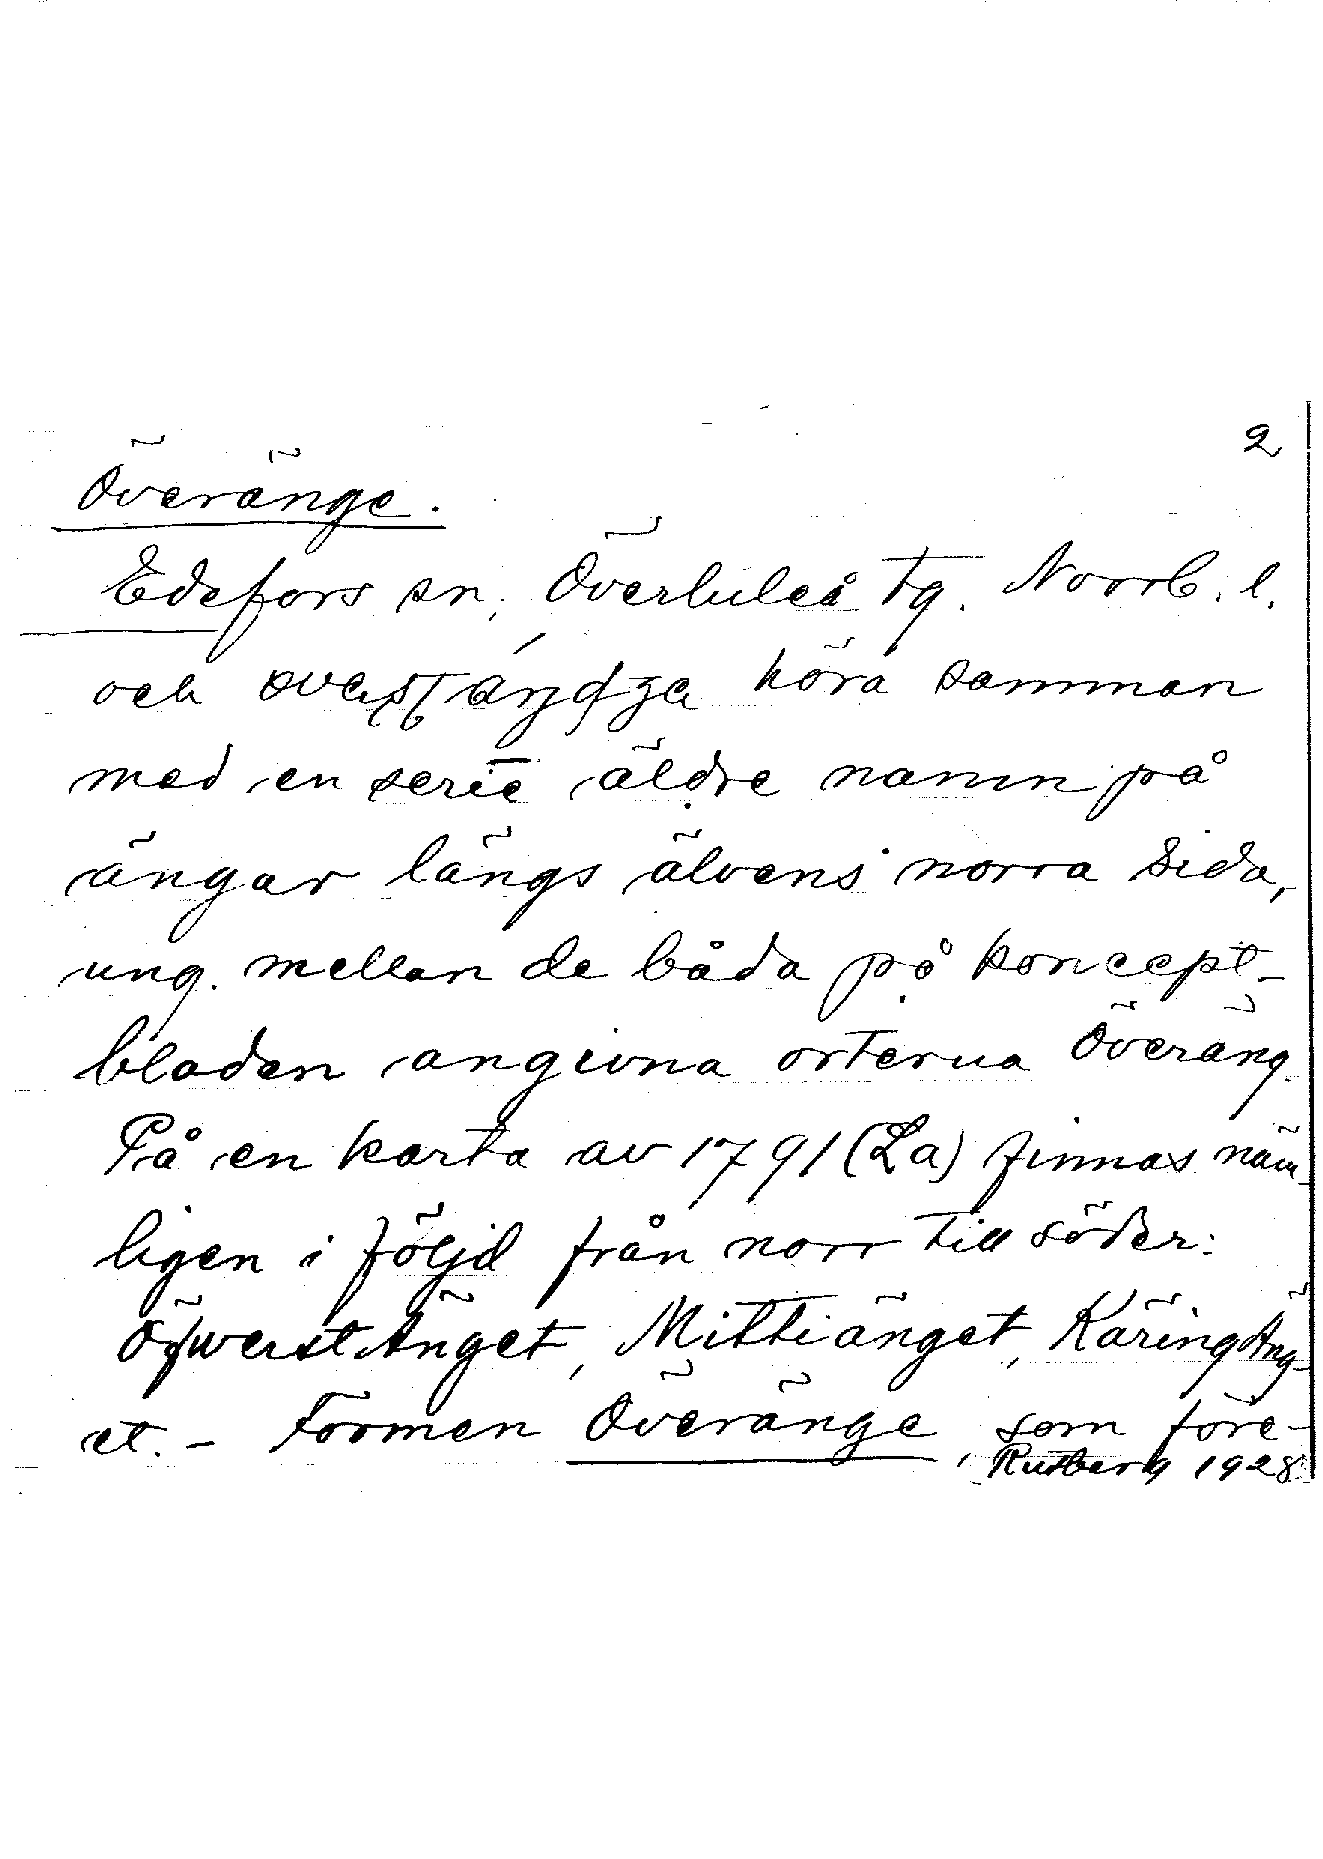 2
Överänge.
Edefors sn, Överluleå tg. Norrb. l.
och höra samman
med en serie äldre namn på
ängar längs älvens norra sida,
ung. mellan de båda på koncept-
bladen angivna orterna Överäng.
På en karta av 1791 (La) finnas näm-
ligen i följd från norr till söder:
Öfwerst Änget, Mittiänget, Käring Äng-
et. - Formen Överänge, som före-
Rutberg 1928